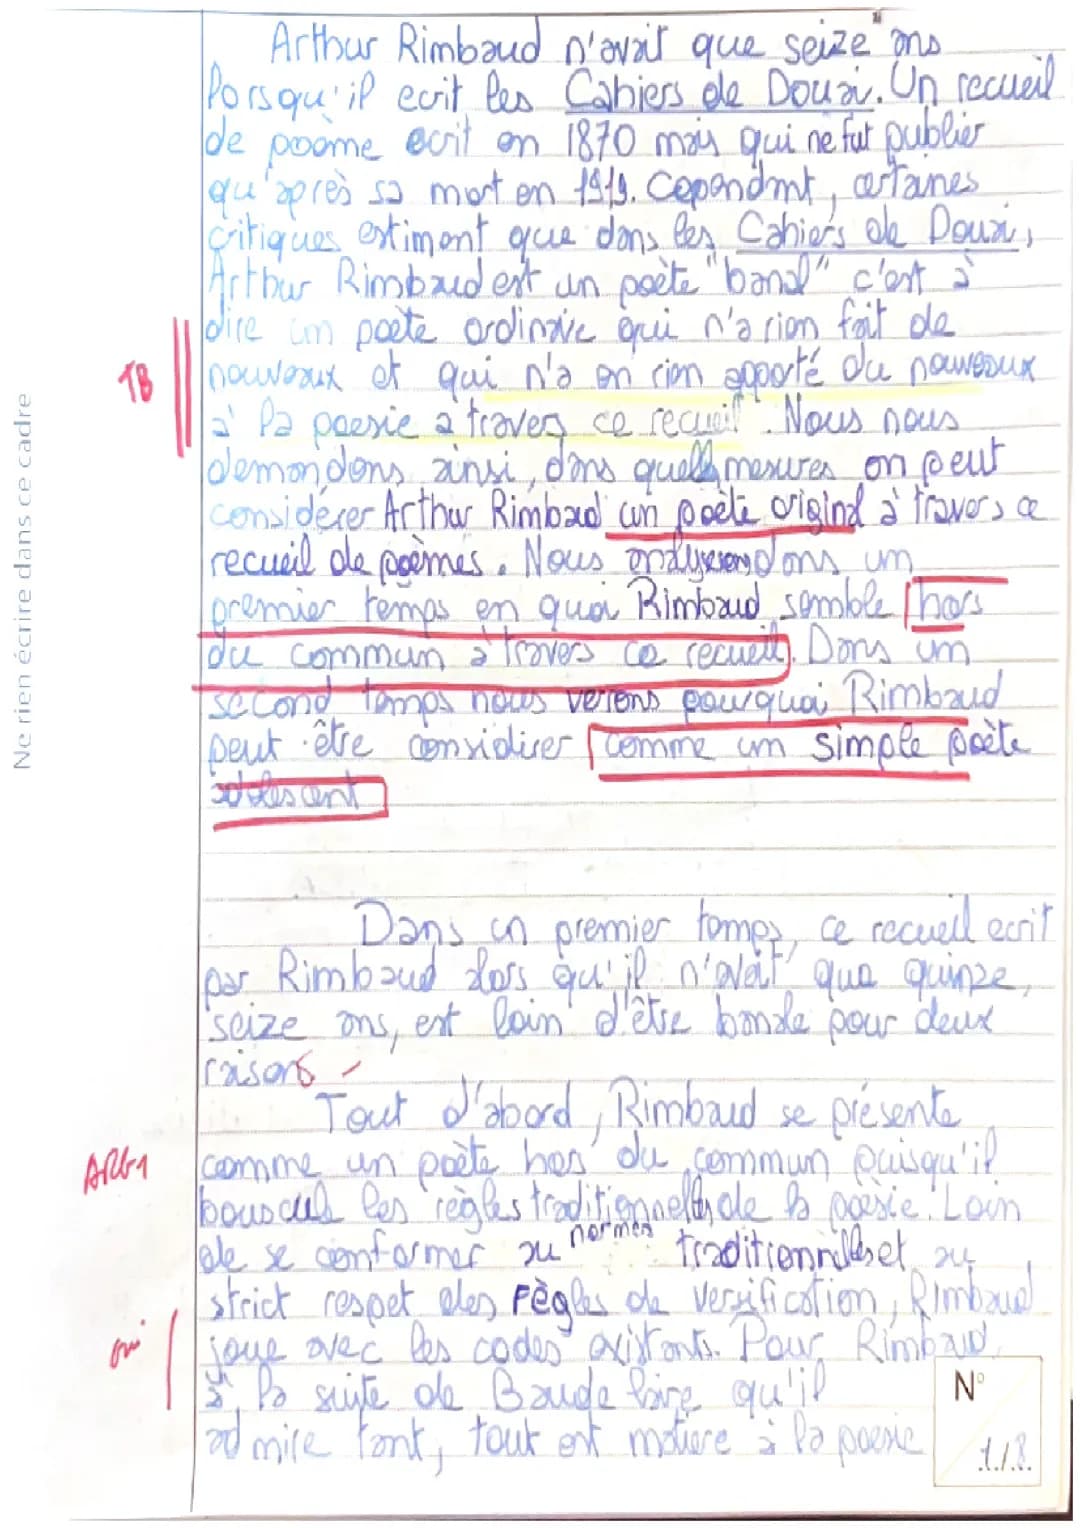 Arthur Rimbaud n'avait que seize ans
lorsqu'il ecrit les Cahiers de Douai. Un recueil
de poome ecrit en 1870 mais qui ne fut publier
qu'après sa mort en 1919. Cependant, certaines
critiques estiment que dans les Cahiers de Douai,
Arthur Rimbaud est un poète "banal" c'est à
dire un poète ordinaire qui n'a rien fait de
nouveaux et qui n'a en rien apporté du nouveaux
TB
à la poesie a travers ce recueil. Nous nous
demandons ainsi, dans quelles mesures on peut
considérer Arthur Rimbaud un poète original à travers ce
recueil de poèmes. Nous analyserons dans un
premier temps en quoi Rimbaud semble hors
du commun à travers ce recueil. Dans un
second temps nous verons pourquoi Rimbaud
peut être considirer comme un simple poète
adolescent
Ne rien écrire dans ce cadre
Dans un premier temps, ce recueil ecrit
par Rimbaud alors qu'il n'avait que quinze,
seize ans, est loin d'être banale pour deux
raisons
Tout d'abord, Rimbaud se présente
ARG1
comme un poète hors du commun puisqu'il
bouscule les règles traditionnelles de la poèsie. Loin
de se conformer au normes traditionnilles et au
strict respet des règles de versification, Rimbaud
joue avec les codes existants. Pour Rimbaud,
oui
à la suite de Baudelaire qu'il
admire tant, tout est matière à la poesie
N°
1/8